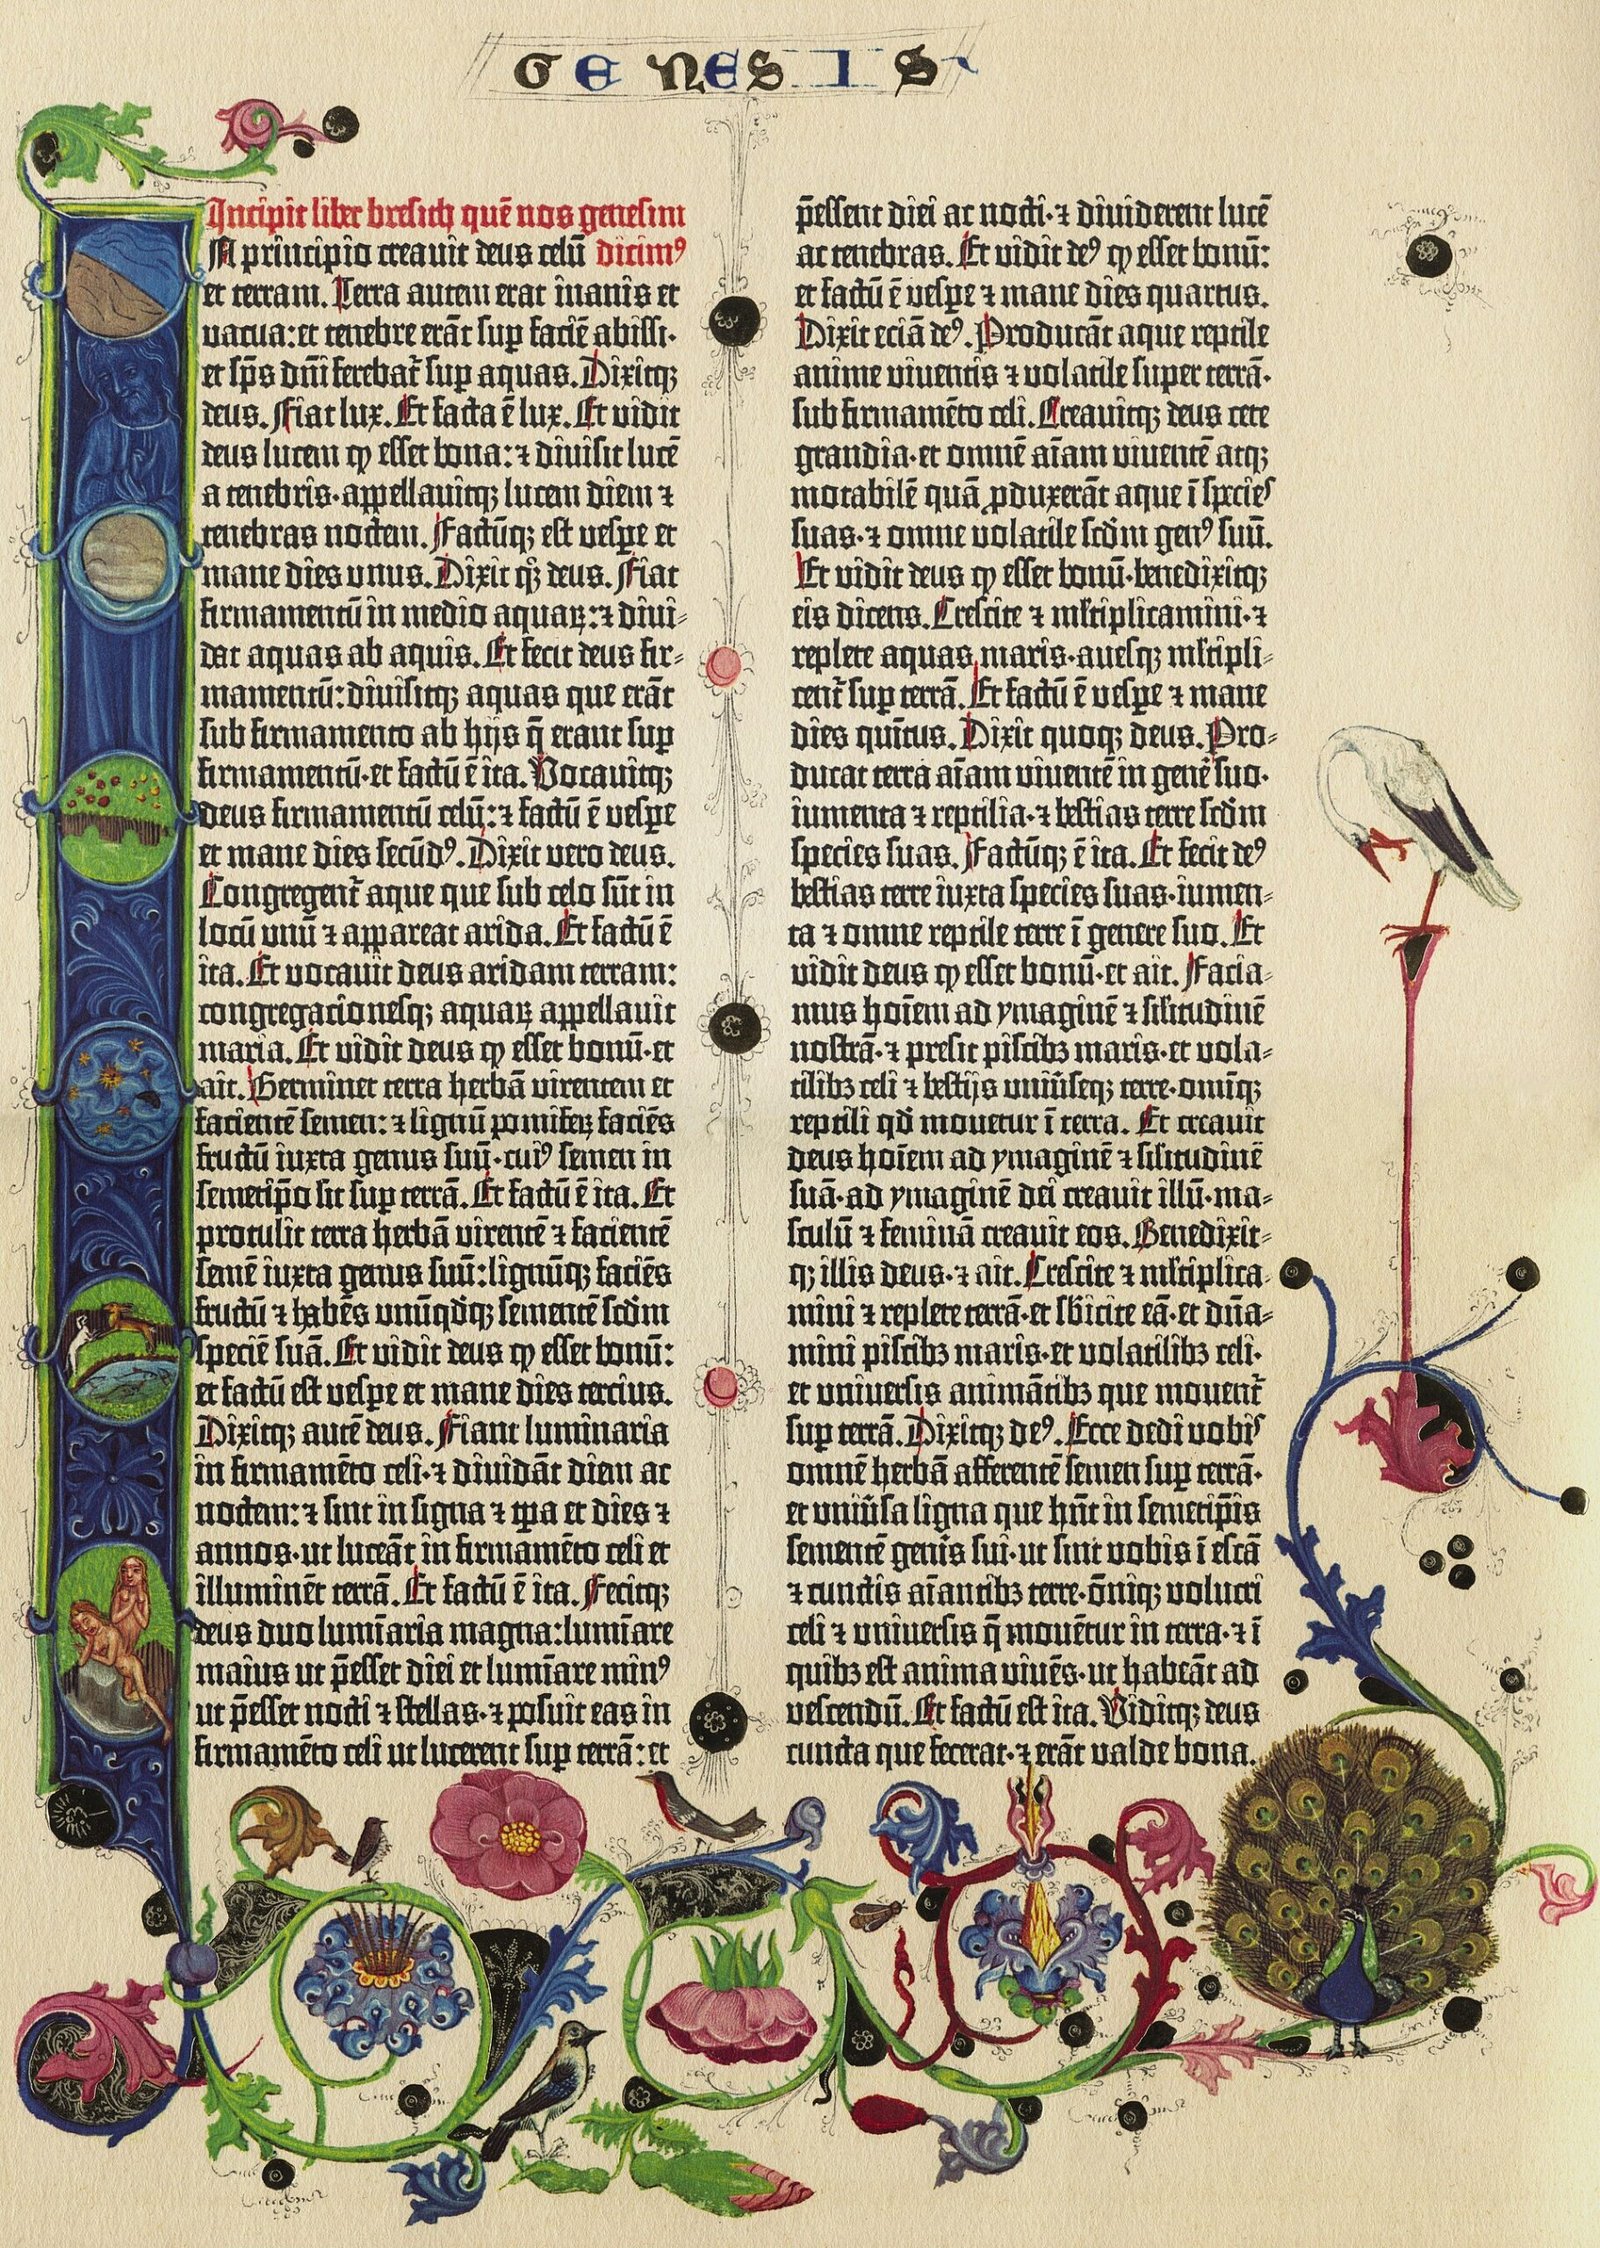 GENESIS
Incipit liber bresith quē nos genesim
In principio creauit deus celū dicim⁹
et terram. Terra autem erat inanis et
vacua: et tenebre erāt sup faciē abissi·
et sp̄s dn̄i ferebat᷑ sup aquas. Dixitq₃
deus. Fiat lux. Et facta ē lux. Et vidit
deus lucem ꝙ esset bona: ⁊ diuisit lucē
a tenebris· appellauitq₃ lucem diem ⁊
tenebras noctem. Factūq₃ est vespe et
mane dies vnus. Dixit qº̄ deus. Fiat
firmamentū in medio aquaꝝ: ⁊ diui-
dat aquas ab aquis. Et fecit deus fir-
mamentū: diuisitq₃ aquas que erāt
sub firmamento ab hijs q̄ erant sup
firmamentū· et factū ē ita. Vocauitq₃
deus firmamentū celū: ⁊ factū ē vespe
et mane dies secūd⁹. Dixit vero deus.
Congregent᷑ aque que sub celo sūt in
locū vnū ⁊ appareat arida. Et factū ē
ita. Et vocauit deus aridam terram:
congregacionesq₃ aquaꝝ appellauit
maria. Et vidit deus ꝙ esset bonū· et
ait. Germinet terra herbā virentem et
facientē semen: ⁊ lignū pomifeꝝ faciēs
fructū iuxta genus suū· cui⁹ semen in
semetip̄o sit sup terrā. Et factū ē ita. Et
protulit terra herbā virentē ⁊ facientē
semē iuxta genus suū: lignūq₃ faciēs
fructū ⁊ habēs vnūqdq₃ sementē scdm
speciē suā. Et vidit deus ꝙ esset bonū:
et factū est vespe et mane dies tercius.
Dixitq₃ autē deus. Fiant luminaria
in firmamēto celi· ⁊ diuidāt diem ac
noctem: ⁊ sint in signa ⁊ tpa et dies ⁊
annos· ut luceāt in firmamēto celi et
illuminēt terrā. Et factū ē ita. Fecitq₃
deus duo lumīaria magna: lumīare
maius ut p̄esset diei et lumīare min⁹
ut p̄esset nocti ⁊ stellas· ⁊ posuit eas in
firmamēto celi ut lucerent sup terrā: et
p̄essent diei ac nocti· ⁊ diuiderent lucē
ac tenebras. Et vidit de⁹ ꝙ esset bonū:
et factū ē vespe ⁊ mane dies quartus.
Dixit eciā de⁹. Producāt aque reptile
anime viuentis ⁊ volatile super terrā·
sub firmamēto celi. Creauitq₃ deus cete
grandia· et omnē aīam viuentē atq₃
motabilē quā ꝓduxerāt aque ī species
suas· ⁊ omne volatile scdm gen⁹ suū.
Et vidit deus ꝙ esset bonū· benedixitq₃
eis dicens. Crescite ⁊ mltiplicamini· ⁊
replete aquas maris· auesq₃ mltipli-
cent᷑ sup terrā. Et factū ē vespe ⁊ mane
dies quītus. Dixit quoq₃ deus. Pro-
ducat terra aīam viuentē in genē suo·
iumenta ⁊ reptilia· ⁊ bestias terre scdm
species suas. Factūq₃ ē ita. Et fecit de⁹
bestias terre iuxta species suas· iumen-
ta ⁊ omne reptile terre ī genere suo. Et
vidit deus ꝙ esset bonū· et ait. Facia-
mus hoīem ad ymaginē ⁊ silitudinē
nostrā· ⁊ presit piscib₃ maris· et vola-
tilib₃ celi ⁊ bestijs vniūseq₃ terre· omīq₃
reptili qd mouetur ī terra. Et creauit
deus hoīem ad ymaginē ⁊ silitudinē
suā· ad ymaginē dei creauit illū· ma-
sculū ⁊ feminā creauit eos. Benedixit-
q₃ illis deus· ⁊ ait. Crescite ⁊ mltiplica-
mini ⁊ replete terrā· et sbicite eā· et dn̄a-
mini piscib₃ maris· et volatilib₃ celi·
et vniuersis animātib₃ que mouent᷑
sup terrā. Dixitq₃ de⁹. Ecce dedi vobis
omnē herbā afferentē semen sup terrā·
et vniūsa ligna que hn̄t in semetip̄is
sementē genīs sui· ut sint vobis ī escā
⁊ cunctis aīantib₃ terre· ōniq₃ volucri
celi ⁊ vniuersis q̄ mouētur in terra· ⁊ ī
quib₃ est anima viuēs· ut habeāt ad
vescendū. Et factū est ita. Viditq₃ deus
cuncta que fecerat· ⁊ erāt valde bona.